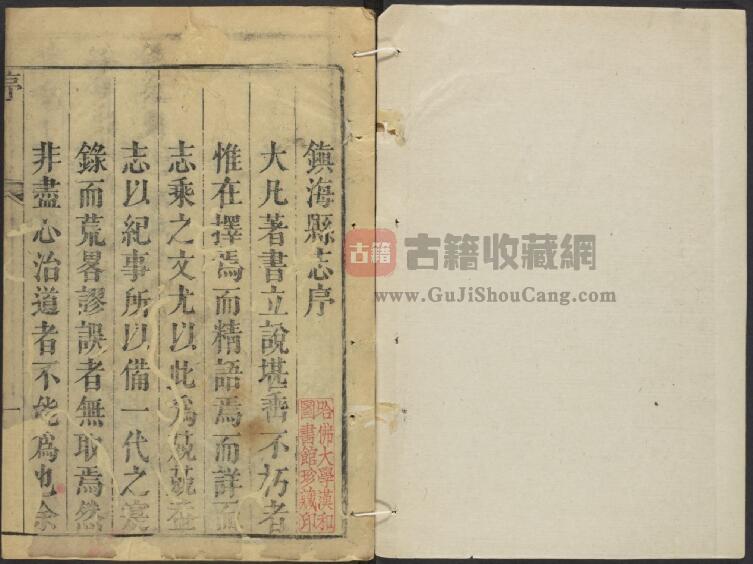 鎮海縣志序
大凡著書立說堪垂不朽者
惟在擇焉而精語焉而詳而
志乘之文尤以此為兢兢蓋
志以紀事所以備一代之實
錄而荒畧謬誤者無取焉然
非盡心治道者不能為也余
序
一
哈佛大學漢和
圖書館珍藏印
古籍 古籍收藏網
www.GuJiShouCang.com